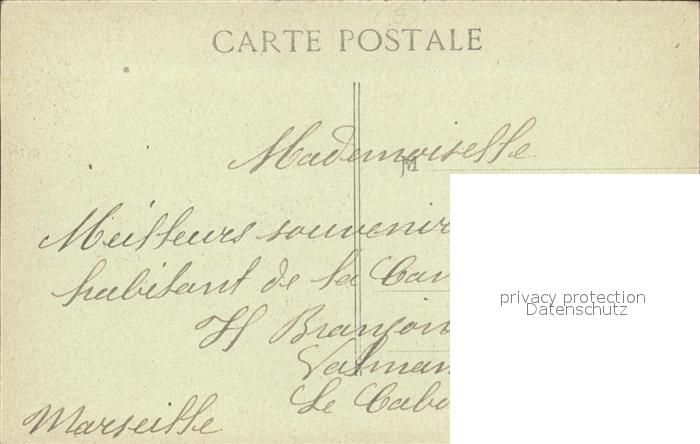 CARTE POSTALE
Mademoiselle
M
Meilleurs souvenir
habitant de la
H Brançon
Le
Marseille
privacy protection
Datenschutz